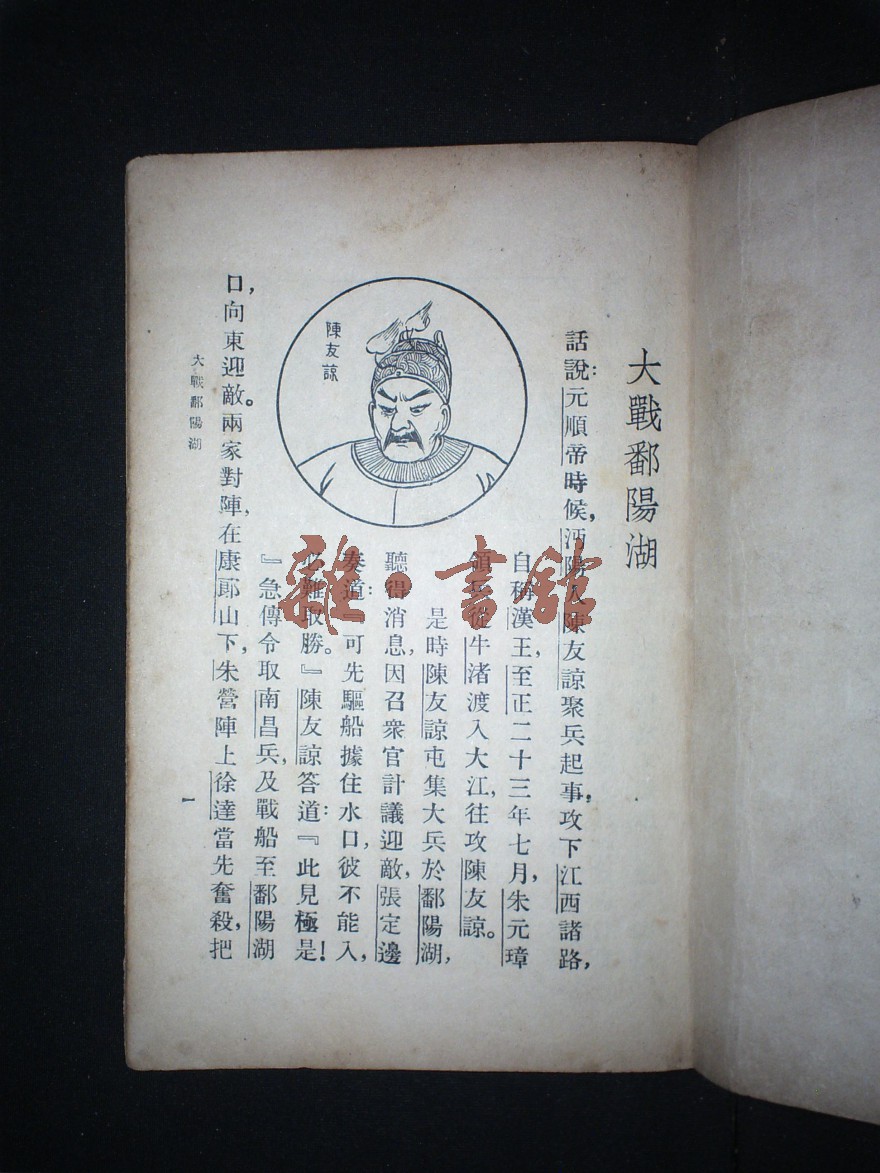 大戰鄱陽湖
話說：元順帝時候，沔陽人陳友諒聚兵起事，攻下江西諸路，
自稱漢王，至正二十三年七月，朱元璋
領兵從牛渚渡入大江，往攻陳友諒。
是時陳友諒屯集大兵於鄱陽湖，
聽得消息，因召衆官計議迎敵，張定邊
奏道：『可先驅船據住水口，彼不能入，
必難取勝。』陳友諒答道：『此見極是！
『急傳令取南昌兵，及戰船至鄱陽湖
口，向東迎敵。兩家對陣，在康郞山下，朱營陣上徐達當先奮殺，把
陳友諒
大戰鄱陽湖
一
雜·書館